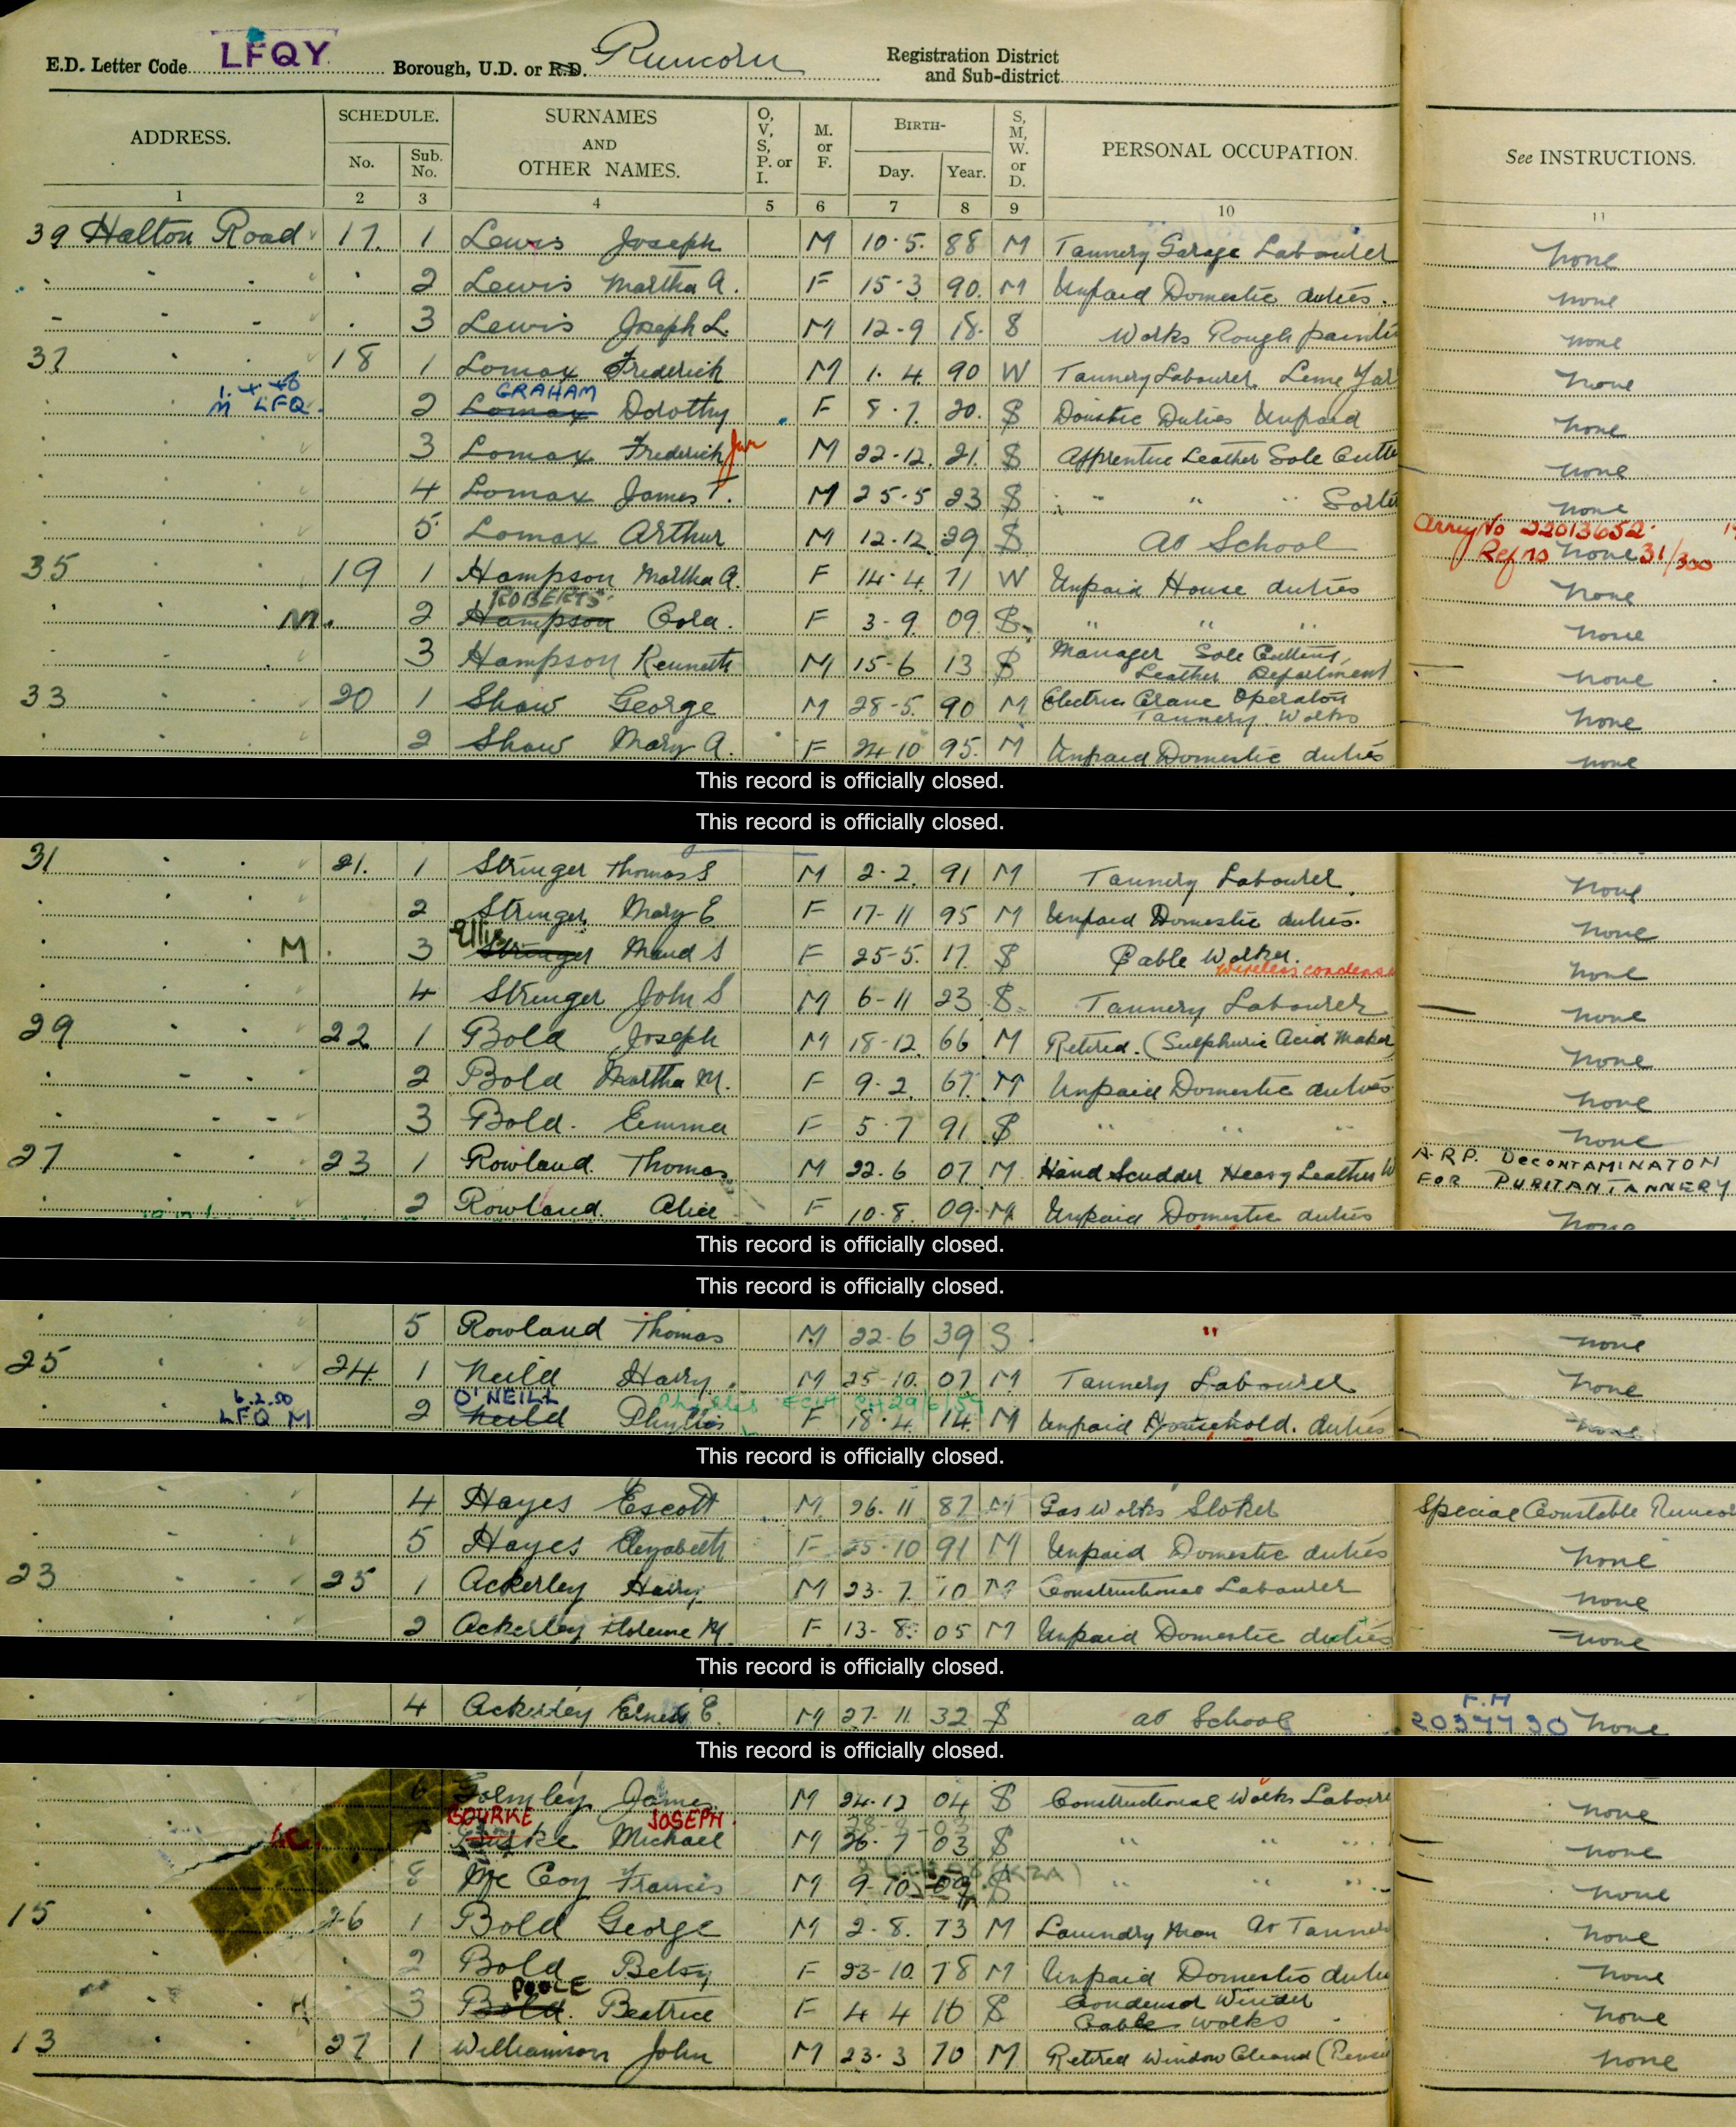 E.D. Letter Code LFQY Borough, U.D. or R.D. Runcorn Registration District and Sub-district
ADDRESS. SCHEDULE. No. Sub. No. SURNAMES AND OTHER NAMES. O, V, S, P. or I. M. or F. BIRTH- Day. Year. S, M, W. or D. PERSONAL OCCUPATION. See INSTRUCTIONS.
1 2 3 4 5 6 7 8 9 10 11
39 Halton Road 17. 1 Lewis Joseph M 10.5. 88 M Tannery Garage Labourer None
2 Lewis Martha A. F 15-3 90. M Unpaid Domestic duties. None
3 Lewis Joseph L. M 12-9 18. S Works Rough painte None
37 18 1 Lomax Frederick M 1. 4 90 W Tannery Labourer. Lime Yar None
1.4.48 M LFQ. 2 Lomax GRAHAM Dorothy F 8.7. 20. S Domestic Duties Unpaid None
3 Lomax Frederick Jun M 22-12. 21. S Apprentice Leather Sole Cutte None
4 Lomax James T. M 25.5 23 S " " " Sorte None
5 Lomax Arthur M 12.12. 29 S At School None
Army No 22013652.
31/300
35 19 1 Hampson Martha A. F 14.4. 71 W Unpaid House duties None
M. 2 Hampson ROBERTS Cora. F 3-9. 09 S " " " None
3 Hampson Kenneth M 15-6 13 S Manager Sole Cutting Leather Department None
33 20 1 Shaw George M 28-5. 90 M Electric Crane Operator Tannery Works None
2 Shaw Mary A. F 24 10 95. M Unpaid Domestic duties None
This record is officially closed.
This record is officially closed.
31 21. 1 Stringer Thomas S M 2.2. 91 M Tannery Labourer. None
2 Stringer Mary E F 17-11 95 M Unpaid Domestic duties. None
M 3 Stringer Maud S F 25-5. 17. S Cable Worker. wireless condense None
4 Stringer John S M 6-11 23 S. Tannery Labourer None
29 22 1 Bold Joseph M 18-12. 66 M Retired. (Sulphuric Acid Maker) None
2 Bold Martha M. F 9.2. 67. M Unpaid Domestic duties None
3 Bold. Emma F 5.7 91 S " " " None
27 23 1 Rowland. Thomas M 22.6 07. M. Hand Scudder Heavy Leather W A.R.P. DECONTAMINATON FOR PURITAN TANNERY
2 Rowland. Alice F 10.8. 09. M Unpaid Domestic duties None
This record is officially closed.
This record is officially closed.
5 Rowland Thomas M 22-6 39 S " None
25 24 1 Neild Harry. M 25-10. 07 M Tannery Labourer None
6.2.50 LFQ M 2 Neild O'NEILL Phyllis F 18.4. 14. M Unpaid Household. duties None
This record is officially closed.
4 Hayes Escott M. 26.11 87 M Gas Works Stoker Special Constable Runcor
5 Hayes Elizabeth F 25-10 91 M Unpaid Domestic duties None
23 25 1 Ackerley Harry M 23.7. 10 M Constructional Labourer None
2 Ackerley Florence M. F 13-8. 05 M Unpaid Domestic duties None
This record is officially closed.
4 Ackerley Ernest E. M 27-11 32 S at School None
This record is officially closed.
6 Gormley James M 24.12 04 S Constructional Works Laboure None
BOURKE Michael JOSEPH. M 26.7 03 S " " " None
8 Mc Coy Francis M 9-10 09 S " " " None
15 26 1 Bold George M 2-8. 73 M Laundry Man At Tanner None
2 Bold Betsy F 23-10. 78 M Unpaid Domestic dutie None
3 Bold. POOLE Beatrice F 4 4 10 S Condensor Winder Cable Works None
13 27 1 Williamson John M 23.3 70 M Retired Window Cleaner None